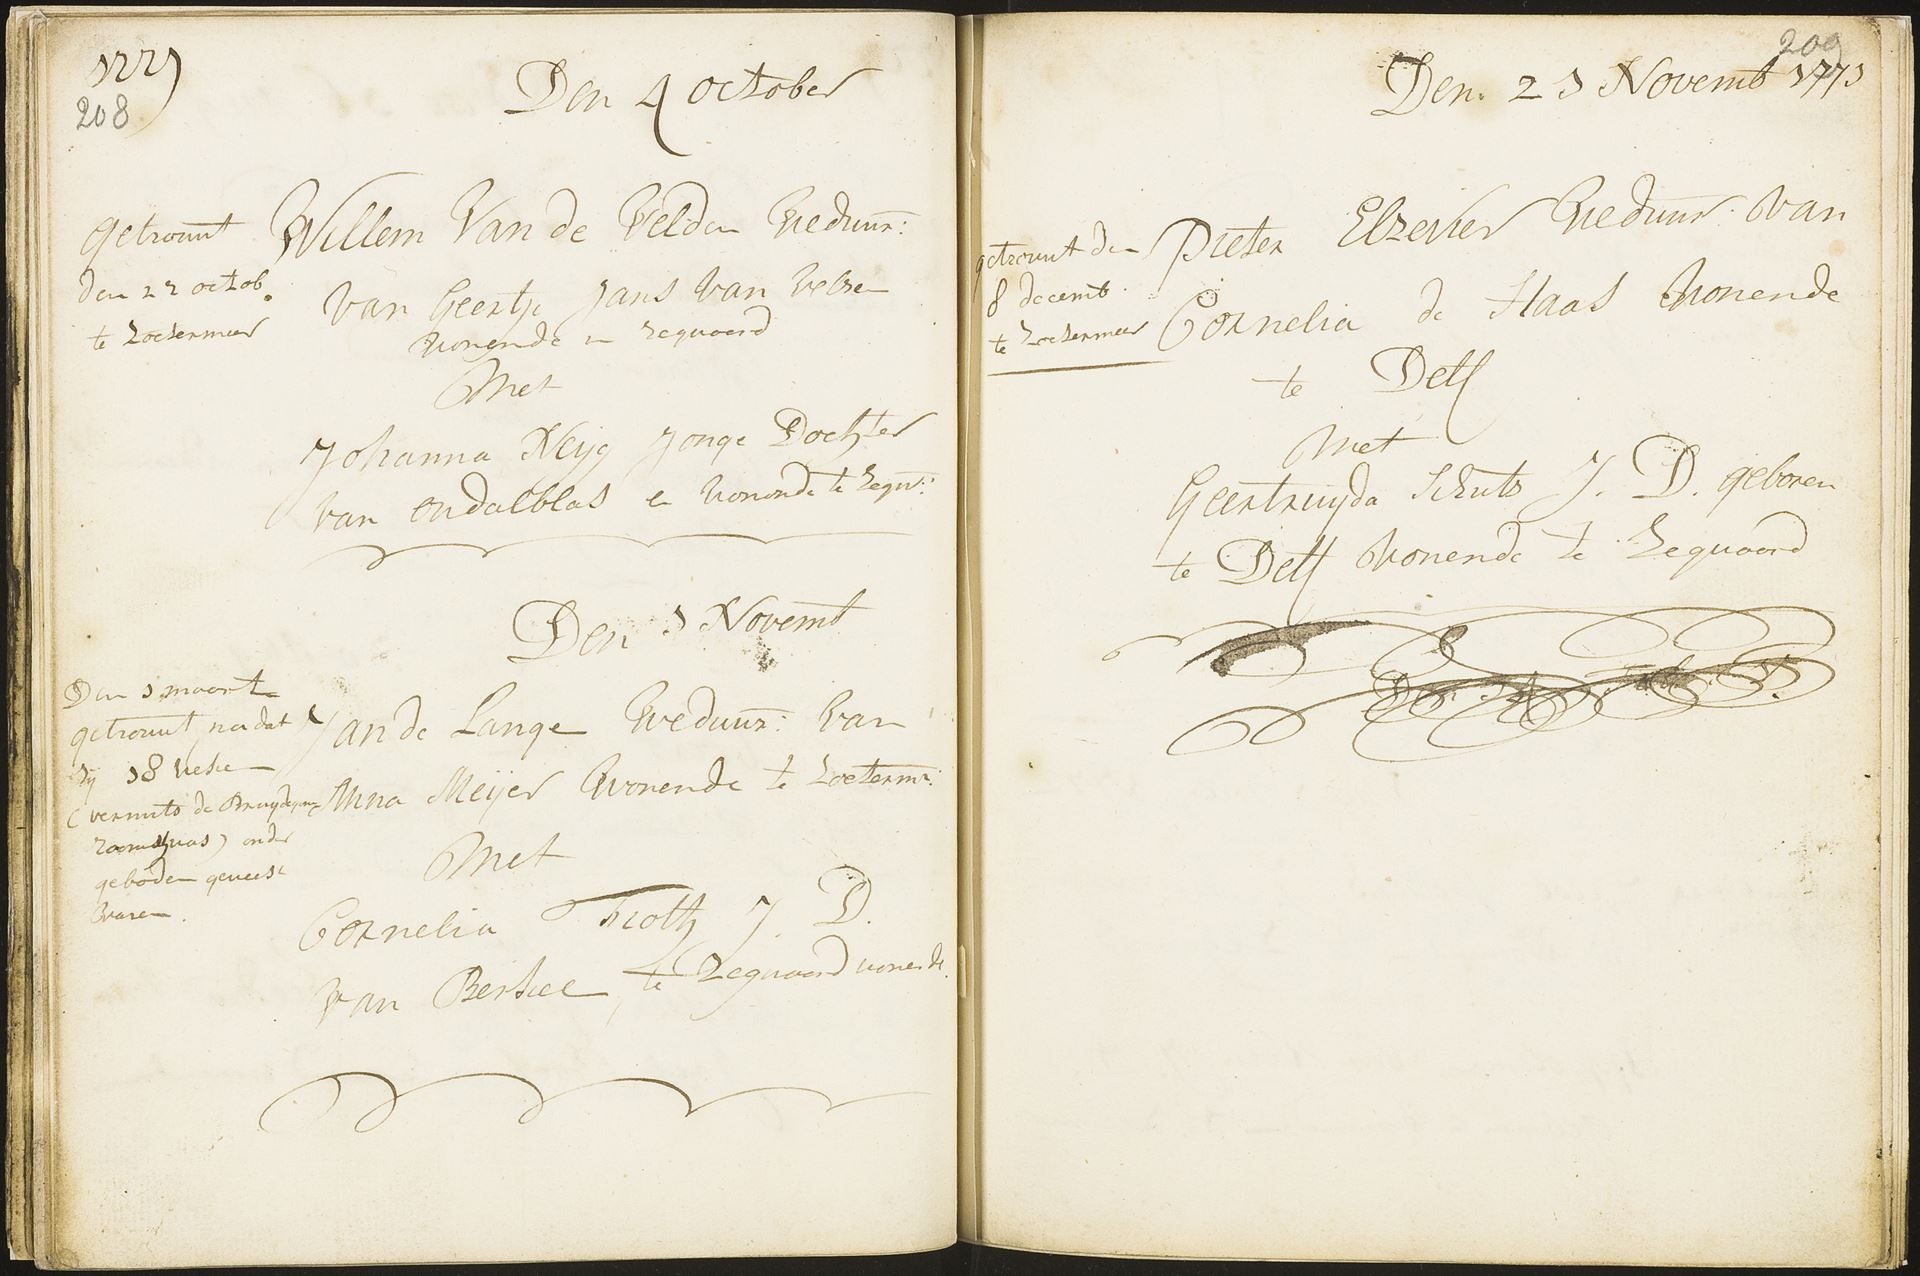 1771
208
Den 4 october
getrouwt
den 22 octob.
te Zoetermeer
Willem Van de Velden Weduwr:
Van Geertje Jans Van Velsen
wonende in Zegwaerd
Met
Johanna Neijg Jonge Dochter
van endaelblas e wonende te Zegw:
Den 1 Novemb
Den 1 maart
getrouwt, na dat
zij 18 weke
(vermits de Bruydegom
rooms was) onder
geboden geweest
waren.
Jan de Lange Weduwr: Van
Anna Meijer Wonende te Zoeterm:
Met
Cornelia J. D.
van Berkel te Zegwaerd wonende
209
Den. 21 Novemb 1771
getrouwt den
8 decemb.
te Zoetermeer
Pieter Elzevier Weduwr. Van
Cornelia de Haas Wonende
te Delf
Met
Geertruyda Schuts J. D. geboren
te Delf Wonende te Zegwaerd